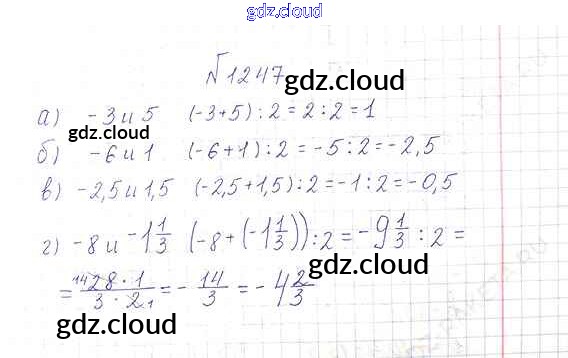 gdz.cloud
№1247
gdz.cloud
а) -3 и 5 (-3+5) : 2 = 2 : 2 = 1
gdz.cloud
б) -6 и 1 (-6+1) : 2 = -5 : 2 = -2,5
в) -2,5 и 1,5 (-2,5+1,5) : 2 = -1 : 2 = -0,5
г) -8 и -1 1/3 (-8 + (-1 1/3)) : 2 = -9 1/3 : 2 =
= 14 28 · 1 / 3 · 2 1 = - 14/3 = -4 2/3
gdz.cloud
gdz.cloud